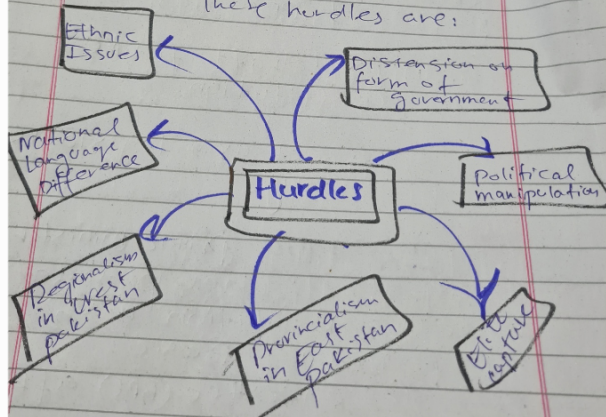 These hurdles are:
Ethnic
Issues
Distension on
form of
government
National
Language
Difference
Hurdles
Political
manipulation
Regionalism
in west
pakistan
Provincialism
in East
pakistan
Elite
capture